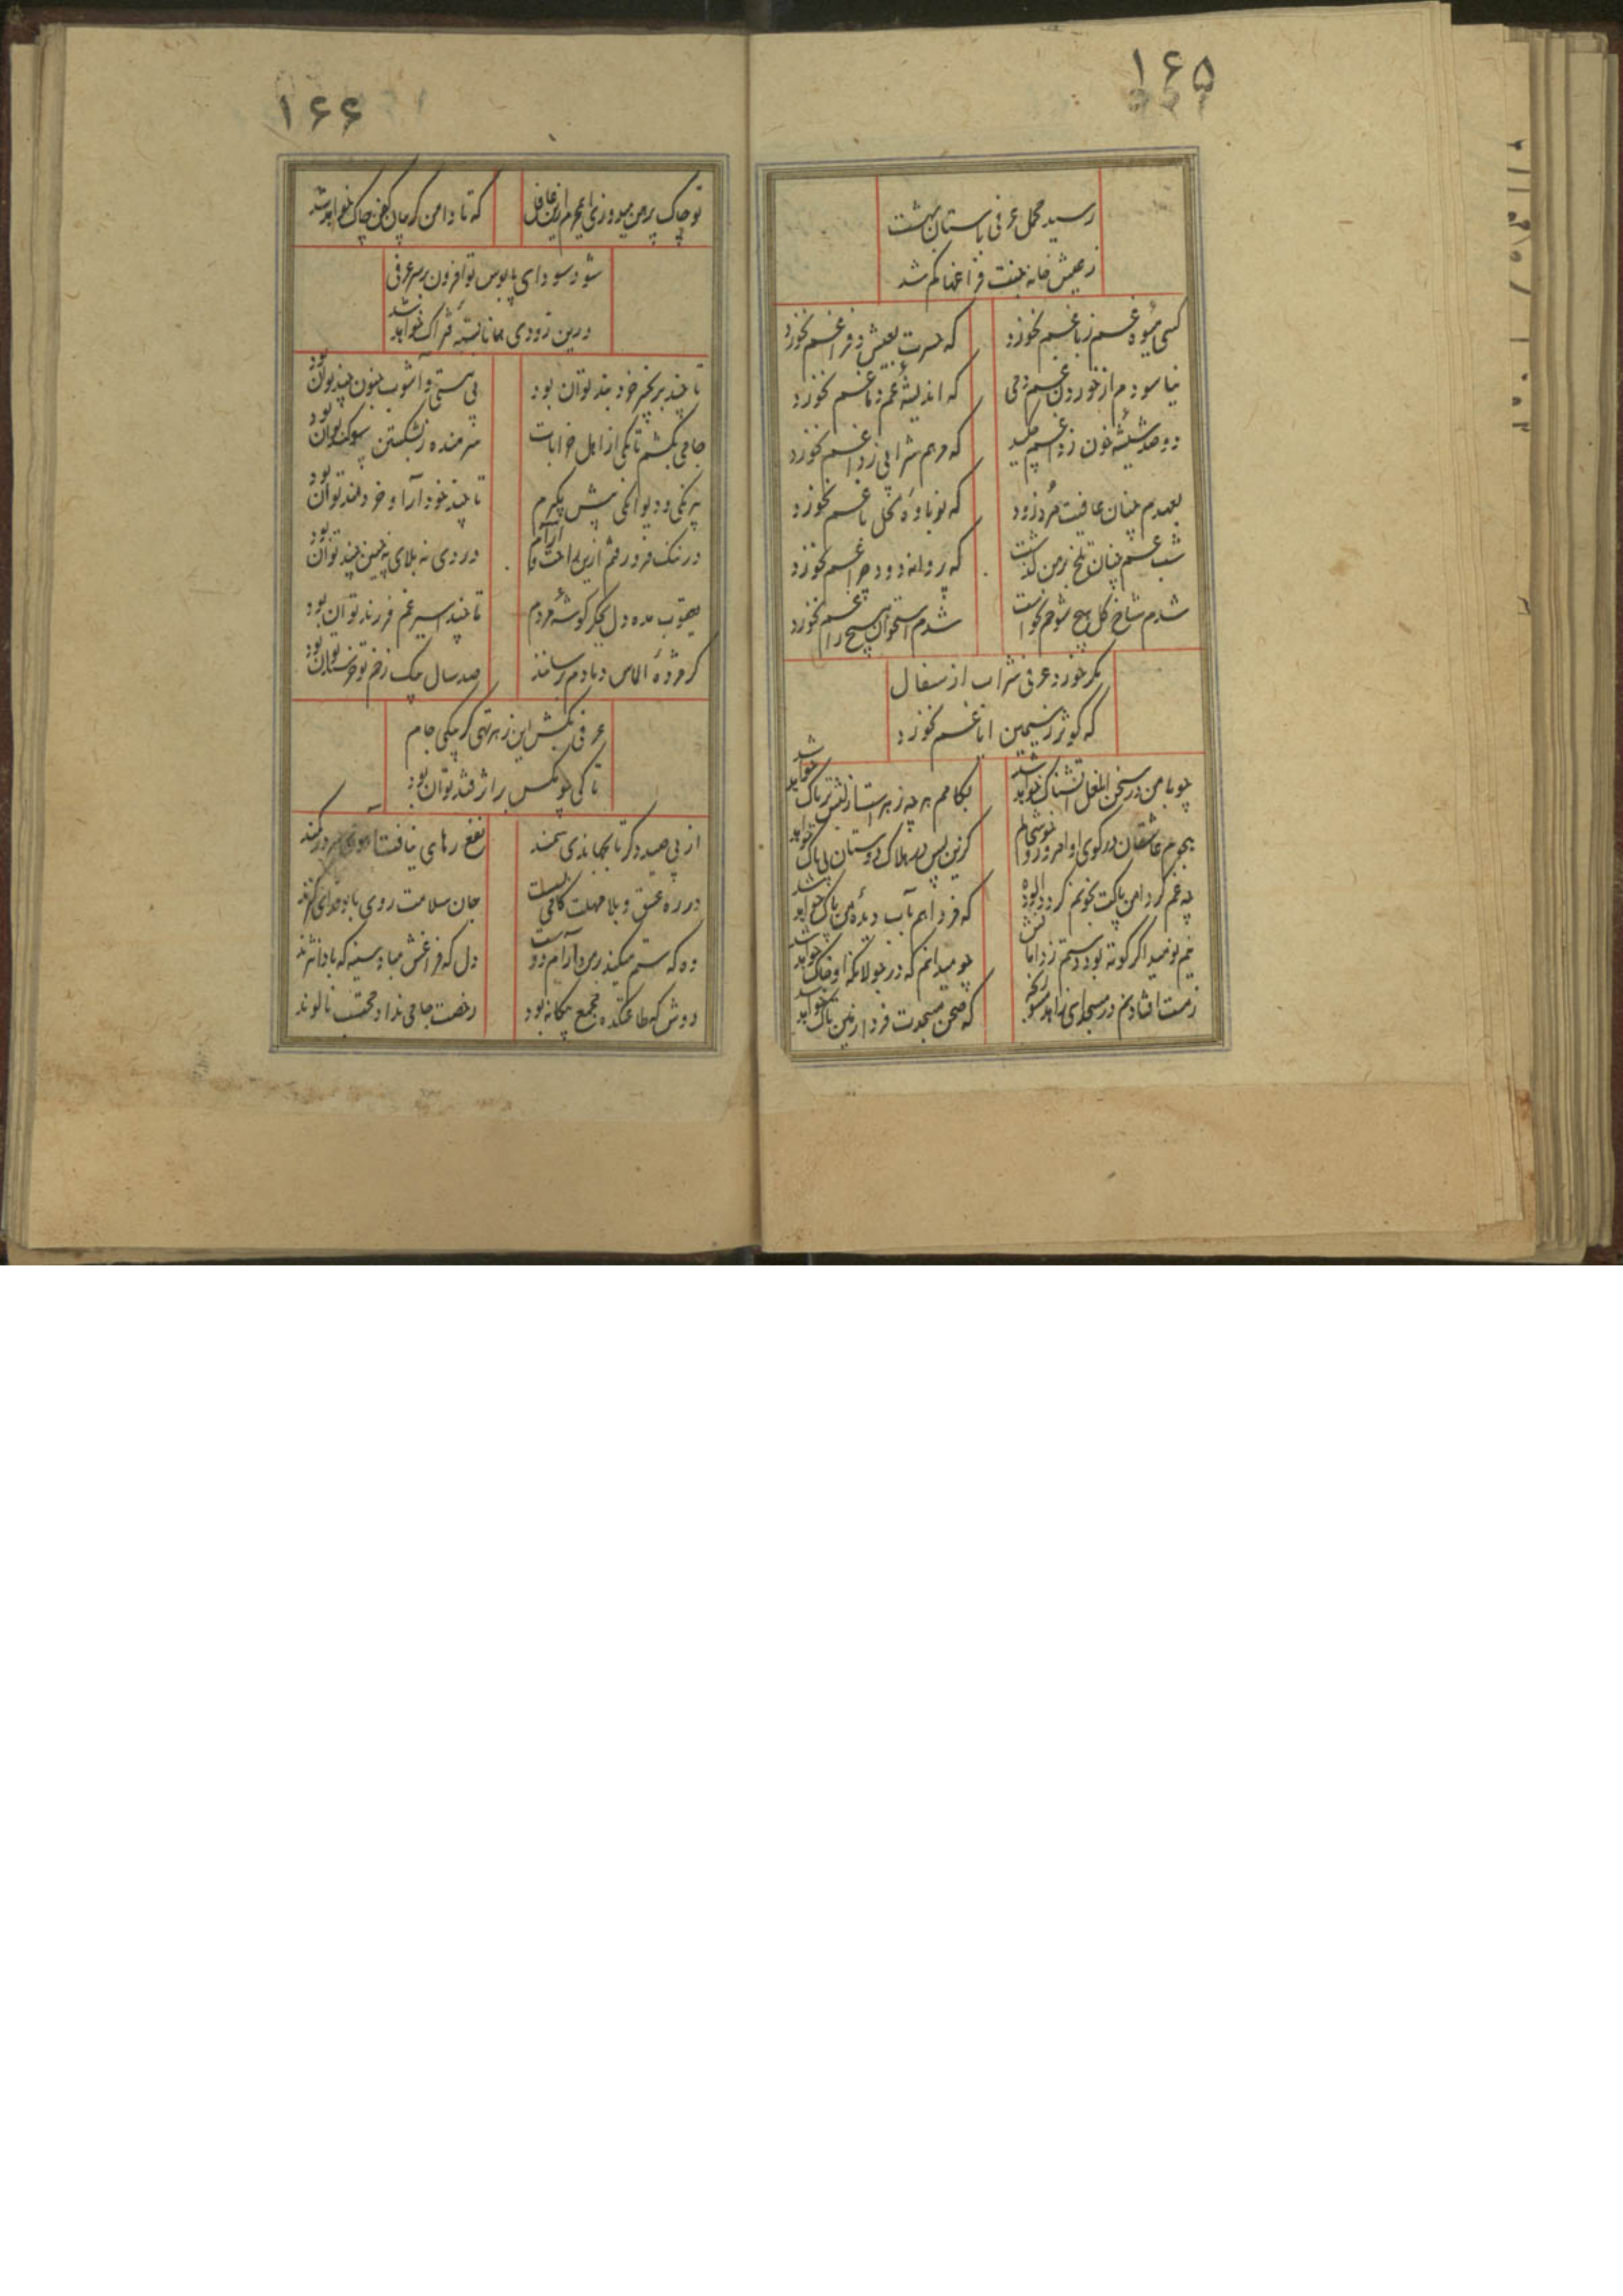 ۱۶۵
رسید محمل عرفی باستان بهشت
ز عیش خانه جنت فراغها کم شد
کسی میوه غم ز باغم نخورد
که حسرت بعیش و فراغم نخورد
نیاسودم از خوردن غم دمی
که اندیشه غم دماغم نخورد
دو صد شیشه خون ز داغم چکید
که مرهم شرابی ز داغم نخورد
بعهدم چنان عافیت مرد زود
که نوباوه نخل باغم نخورد
شب غم چنان تلخ بر من گذشت
که پروانه دود چراغم نخورد
شدم شاخ گل هیچ شوخم نخواست
شدم استخوان هیچ زاغم نخورد
مگر خورد عرفی شراب از سفال
که کوثر ز سیمین ایاغم نخورد
چو با من در سخن آن لعل آتشناک خواهد شد
بکامم هر چه زهر است از لبش تریاک خواهد شد
هجوم عاشقان در کوی او امروز و خوشحالم
کزین پس در هلاک دوستان بی باک خواهد شد
چه غم گر دامن پاکت بخونم گردد آلوده
که فردا هم بآب دیده من پاک خواهد شد
نیم نومید اگر کوته بود دستم ز دامانش
چو میدانم که در جولانگه او خاک خواهد شد
ز مست افتادنم در مسجد ای زاهد مشو رنجه
که صحن مسجدت فردا زمین تاک خواهد شد
۱۶۶
تو چاک پیرهن میدوزی ای محرم ازین غافل
که تا دامن گریبان کفن چاک خواهد شد
شود سودای پابوس تو افزون بر سر عرفی
درین زودی همانا بسته فتراک خواهد شد
تا چند بزنجیر خرد بند توان بود
بی مستی و آشوب جنون چند توان بود
جامی بکشم تا بکی از اهل خرابات
شرمنده ز بشکستن سوگند توان بود
بیرنگی و دیوانگی پیش بگیرم
تا چند خودآرا و خردمند توان بود
در ننگ فرو رفتم ازین راحت و آرام
دردی نه بلای نه چنین چند توان بود
یعقوب مده دل بجگر گوشه مردم
تا چند اسیر غم فرزند توان بود
گر مژده الماس دمادم برسانند
صد سال بیک زخم تو خرسند توان بود
عرفی بکش این زهر تهی کن یکی جام
تا کی چو مگس بر اثر قند توان بود
از پی صید دگر تا بجهاندی سمند
ذوق رهایی نیافت آهوی سر در کمند
در ره عشق و بلا مهلت گامی نیست
جان سلامت روی پا بوفای گزند
وه که ستم میکند بر من و آرام دوست
دل که فراغش مباد سینه که بادا نژند
دوش که طاعتکده مجمع بیگانه بود
رخصت جامی نداد محتسب نالوند